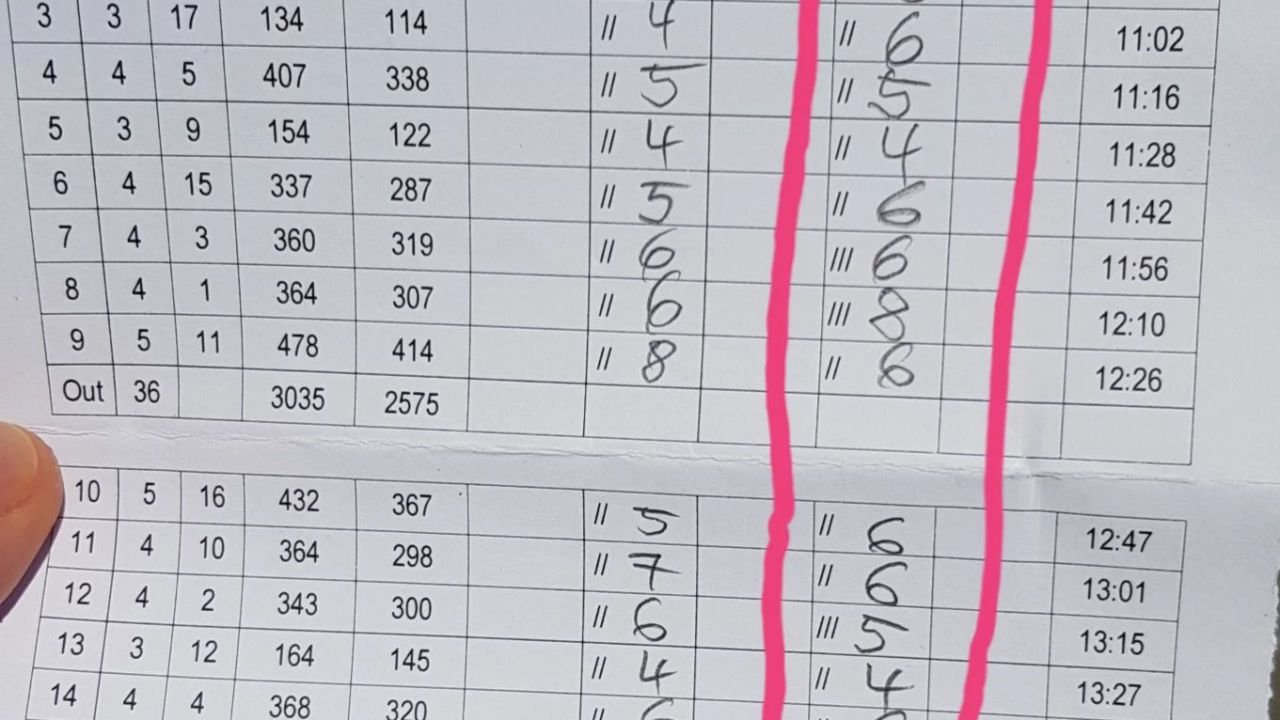 3 3 17 134 114 // 4 // 6 11:02
4 4 5 407 338 // 5 // 5 11:16
5 3 9 154 122 // 4 // 4 11:28
6 4 15 337 287 // 5 // 6 11:42
7 4 3 360 319 // 6 /// 6 11:56
8 4 1 364 307 // 6 /// 8 12:10
9 5 11 478 414 // 8 // 6 12:26
Out 36 3035 2575
10 5 16 432 367 // 5 // 6 12:47
11 4 10 364 298 // 7 // 6 13:01
12 4 2 343 300 // 6 /// 5 13:15
13 3 12 164 145 // 4 // 4 13:27
14 4 4 368 320 //